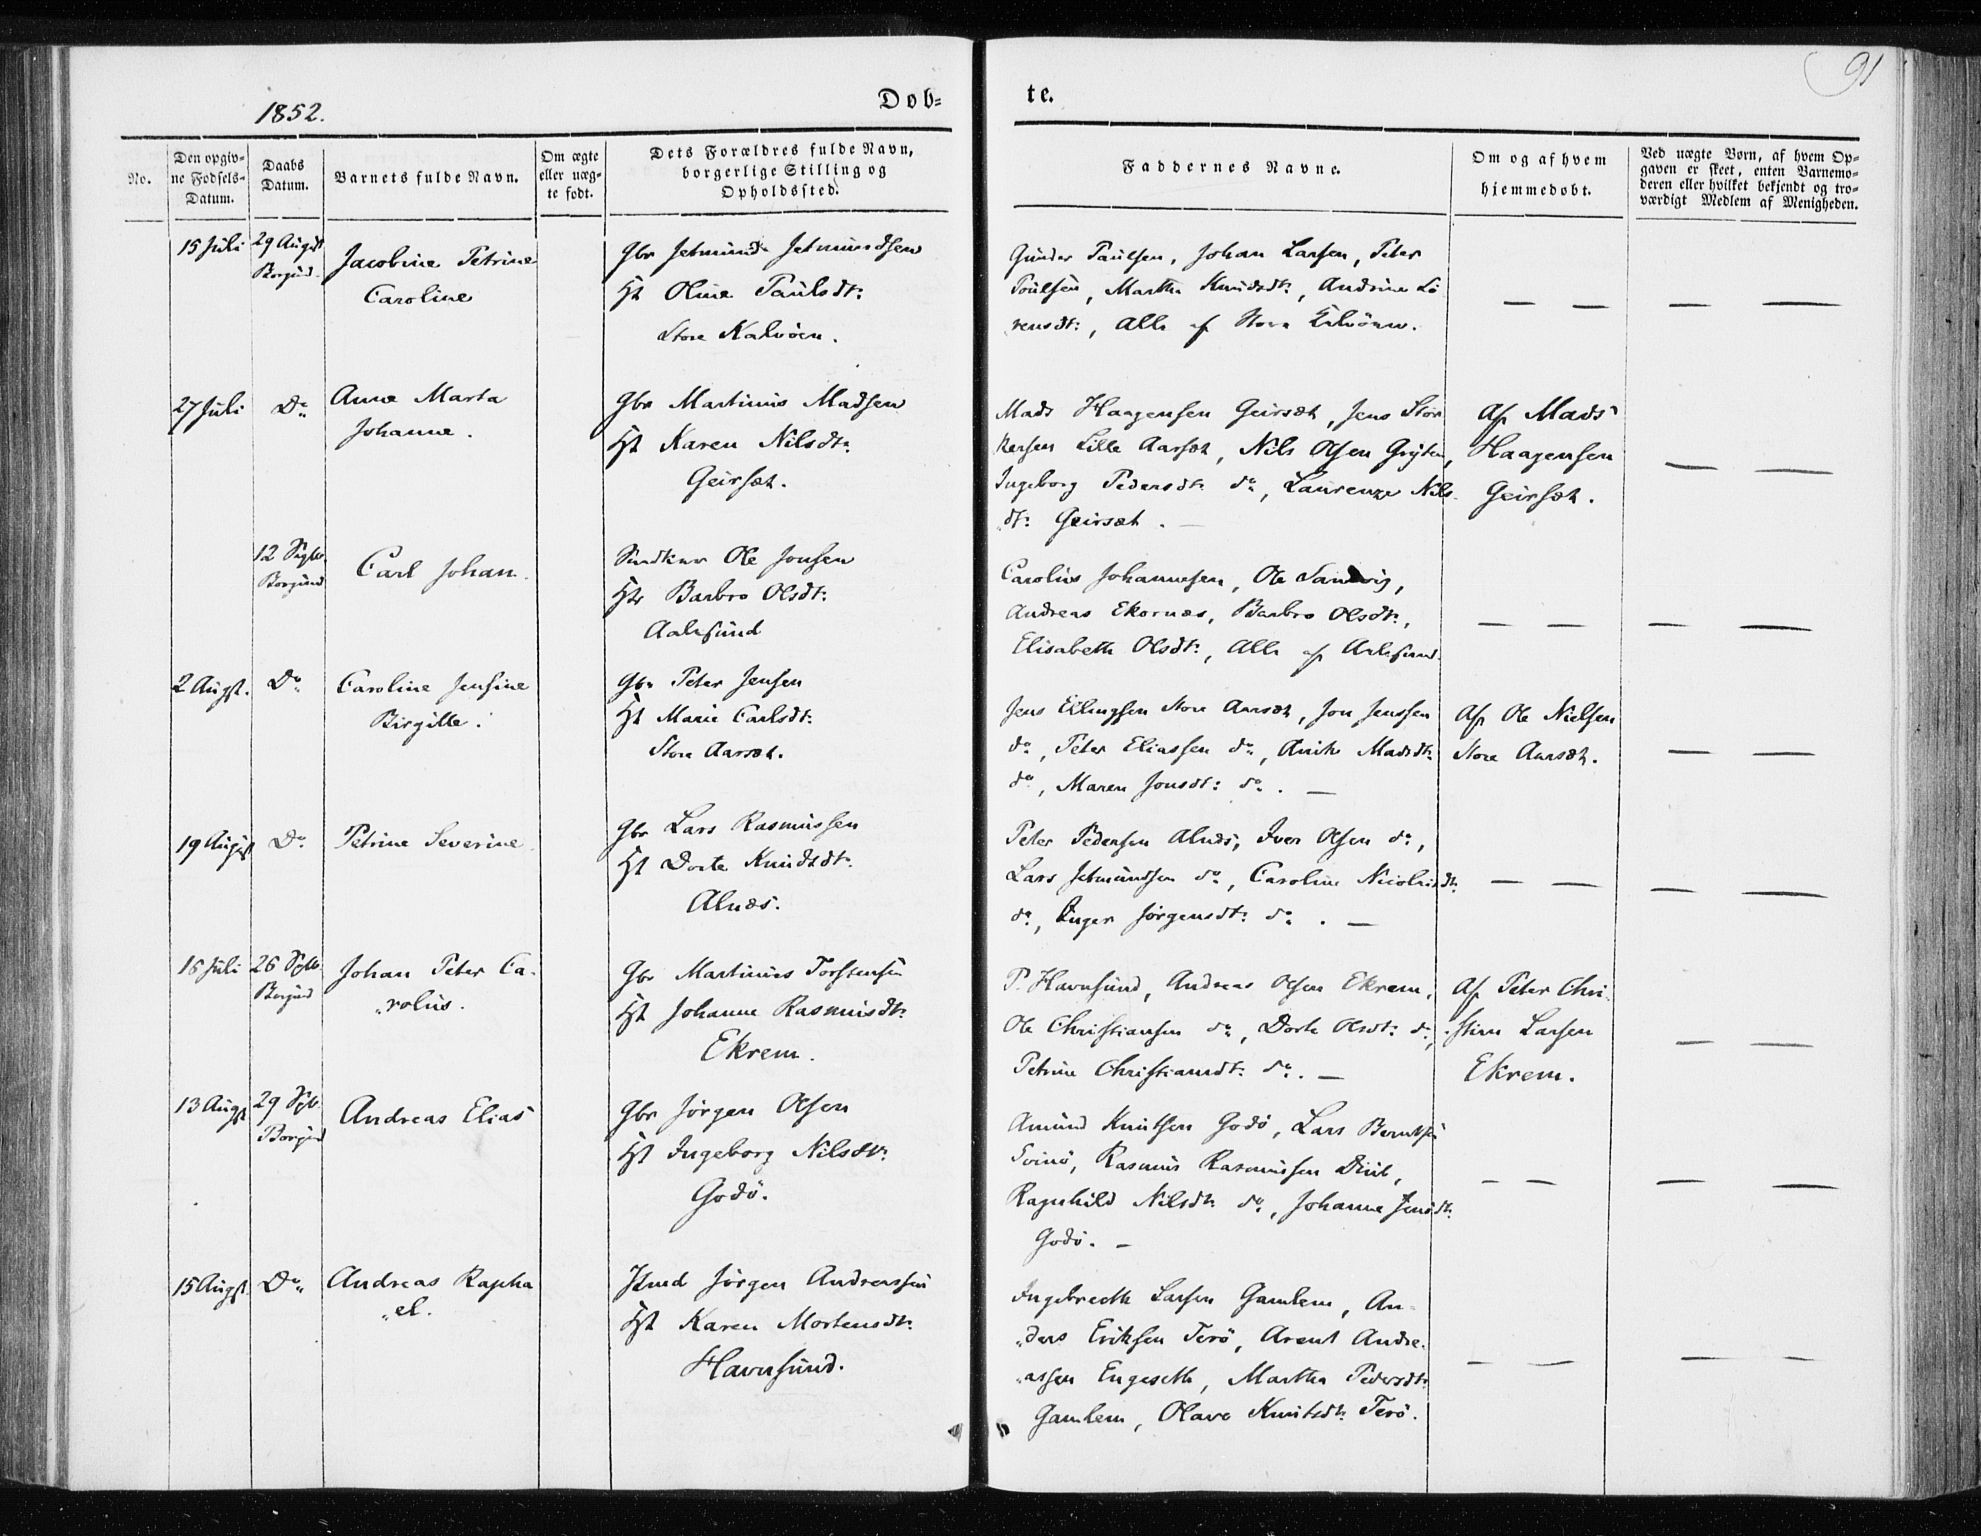 1852.
Døb-
te.
91
No.
Den opgiv-
ne Fødsels-
Datum.
Daabs
Datum.
Barnets fulde Navn.
Om ægte
eller uæg-
te født.
Dets Forældres fulde Navn,
borgerlige Stilling og
Opholdssted.
Faddernes Navne.
Om og af hvem
hjemmedøbt.
Ved uægte Børn, af hvem Op-
gaven er skeet, enten Barnemo-
deren eller hvilket bekjendt og tro-
værdigt Medlem af Menigheden.
15 Juli
29 August
Borgund
Jacobine Petrine
Caroline
Gbr Jetmund Jetmundsen
Hst Oline Paulsdtr:
Store Kalvøen.
Gunder Paulsen, Johan Larsen, Peter
Poulsen, Martha Knudsdtr:, Andrine Lo
rensdt:, Alle af Store Kalvöen.
27 Juli
Do
Anne Marta
Johanne.
Gbr Martinus Madsen
Hst Karen Nilsdtr.
Geirsæt.
Mads Haagensen Geirsæt, Jens Stor
kersen Lille Aarsæt, Nils Olsen Gryten,
Ingeborg Pedersdtr do, Laurenze Nils
dt: Geirsæt. —
Af Mads
Haagensen
Geirsæt.
12 Septbr
Borgund
Carl Johan.
Ole Jonsen
Hst Barbro Olsdt:
Aalesund
Carolius Johannesen, Ole Sandvig,
Andreas Ekornæs, Barbro Olsdt:,
Elisabeth Olsdt:, Alle af Aalesund.
2 Augst.
Do
Caroline Jensine
Birgitte.
Gbr Peter Jensen
Hst Marie Carlsdt:
Store Aarsæt.
Jens Ellingsen Store Aarsæt, Jon Jenssen
do, Peter Eliassen do, Anite Madsdtr
do, Maren Jonsdt: do. —
Af Ole Nielsen
Store Aarsæt.
19 August
Do
Petrine Severine
Gbr Lars Rasmussen
Hst Dorte Knudsdtr.
Alnæs.
Peter Pedersen Alnæs, Iver Olsen do,
Lars Jetmundsen do, Caroline Nicolaisdt.
do, Inger Jörgensdt: do. —
16 Juli
26 Septb
Borgund
Johan Peter Ca-
rolius.
Gbr Martinus Torstensen
Hst Johanne Rasmusdt:
Ekrem.
P. Havnsund, Andreas Olsen Ekrem,
Ole Christiansen do, Dorte Olsdt: do,
Petrine Christiansdt: do. —
Af Peter Chri-
stian Larsen
Ekrem.
13 Augst
29 Sptb
Borgund
Andreas Elias
Gbr Jörgen Olsen
Hst Ingeborg Nilsdtr.
Godö.
Amund Knutsen Godö, Lars Berntsen
Svinö, Rasmus Rasmussen
Ragnhild Nilsdtr do, Johanne Jensdtr.
Godö. —
15 Augst
Do
Andreas Rapha
el.
Jörgen Andreassen
Hst Karen Mortensdtr.
Havnsund.
Ingebrecth Larsen Gamlem, An-
ders Eriksen Terö, Arent Andre-
assen Engeseth, Martha Pedersdtr
Gamlem, Olave Knutsdtr: Terö.